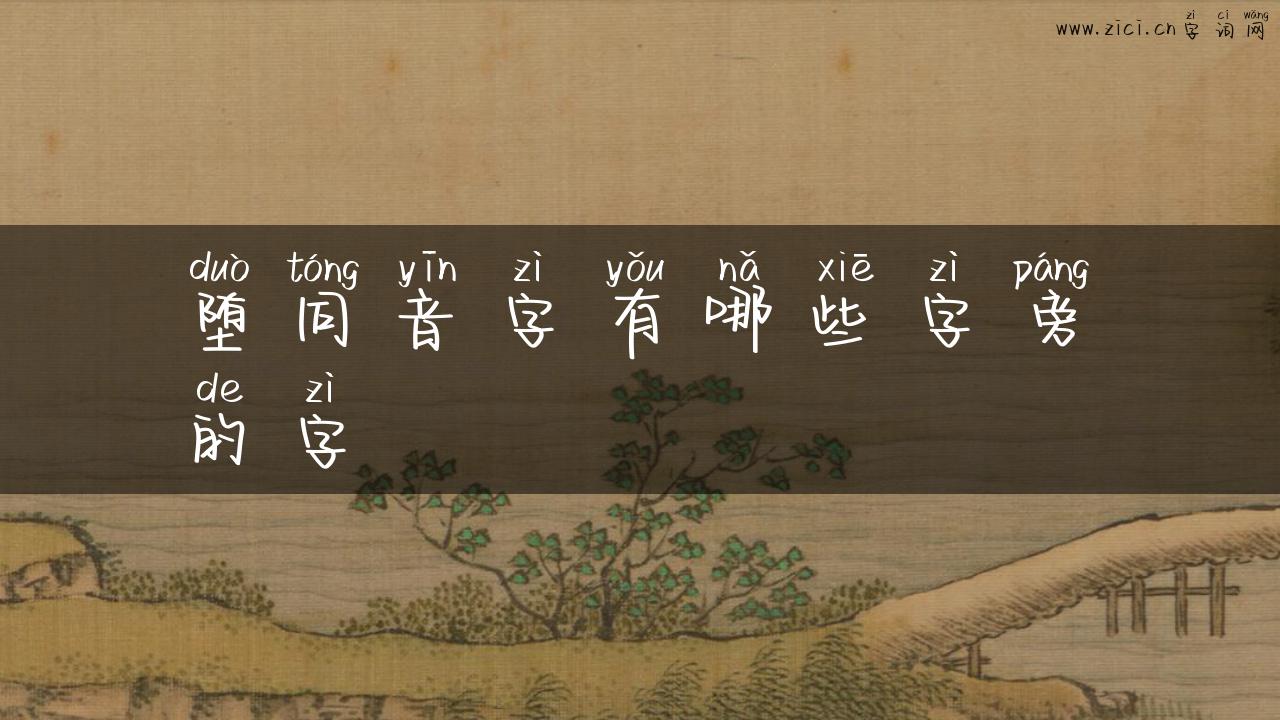 zì cí wǎng
www.zici.cn 字词网
duò tóng yīn zì yǒu nǎ xiē zì páng
堕同音字有哪些字旁
de zì
的字